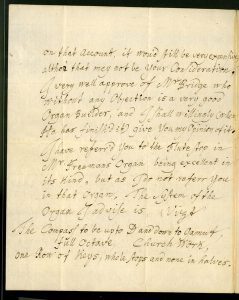 on that account, it woud still be very expensive
altho that may not be Your Consideration. I
very well approve of Mr Bridge who
without any Objection is a very good
Organ Builder, and I shall willingly (when
He has finish'd it) give You my Opinion of it.
I have referr'd You to the Flute stop in
Mr Freemans Organ being excellent in
its kind, but as I do not referr you
in that Organ, The System of the
Organ I advise is. (Vizt
The Compass to be up to D and down to Gamut
full Octave Church Work,
one Row of Keys, whole stops and none in halves.